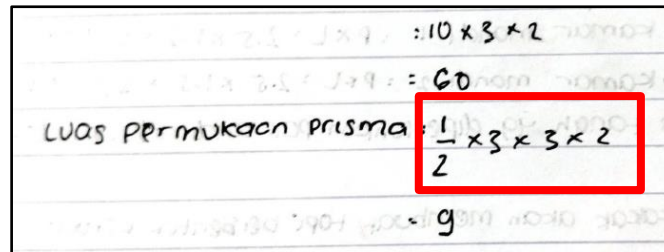 : 10 x 3 x 2
= 60
Luas permukaan prisma : 1/2 x 3 x 3 x 2
= 9